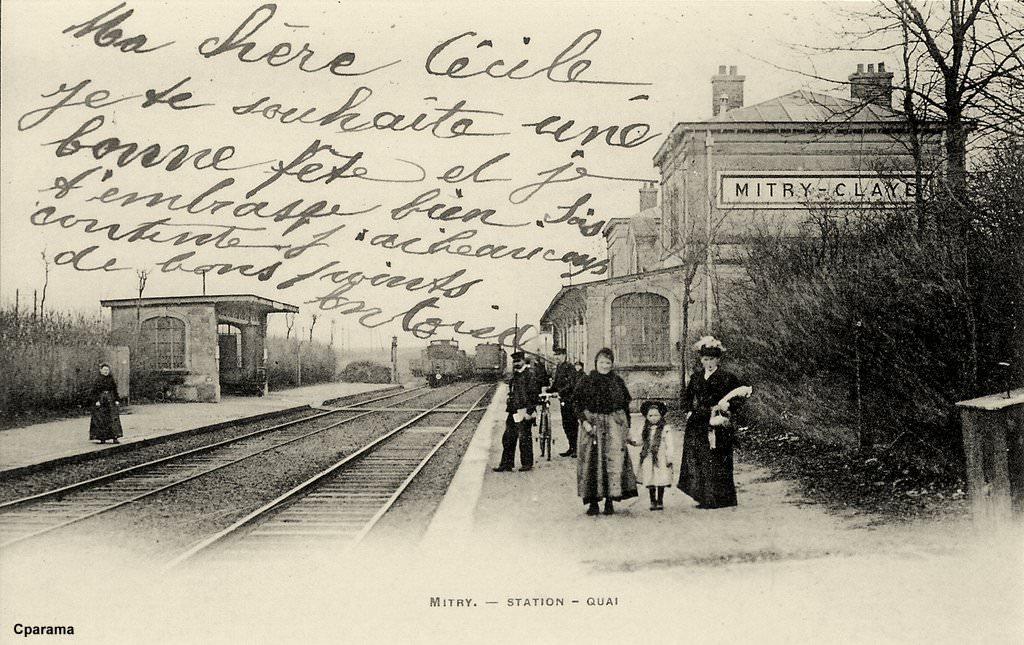 Ma chère Cécile
Je te souhaite une
bonne fête et je
t'embrasse bien Sois
contente j'ai beaucoup
de bons points
MITRY-CLAYE
MITRY. — STATION - QUAI
Cparama